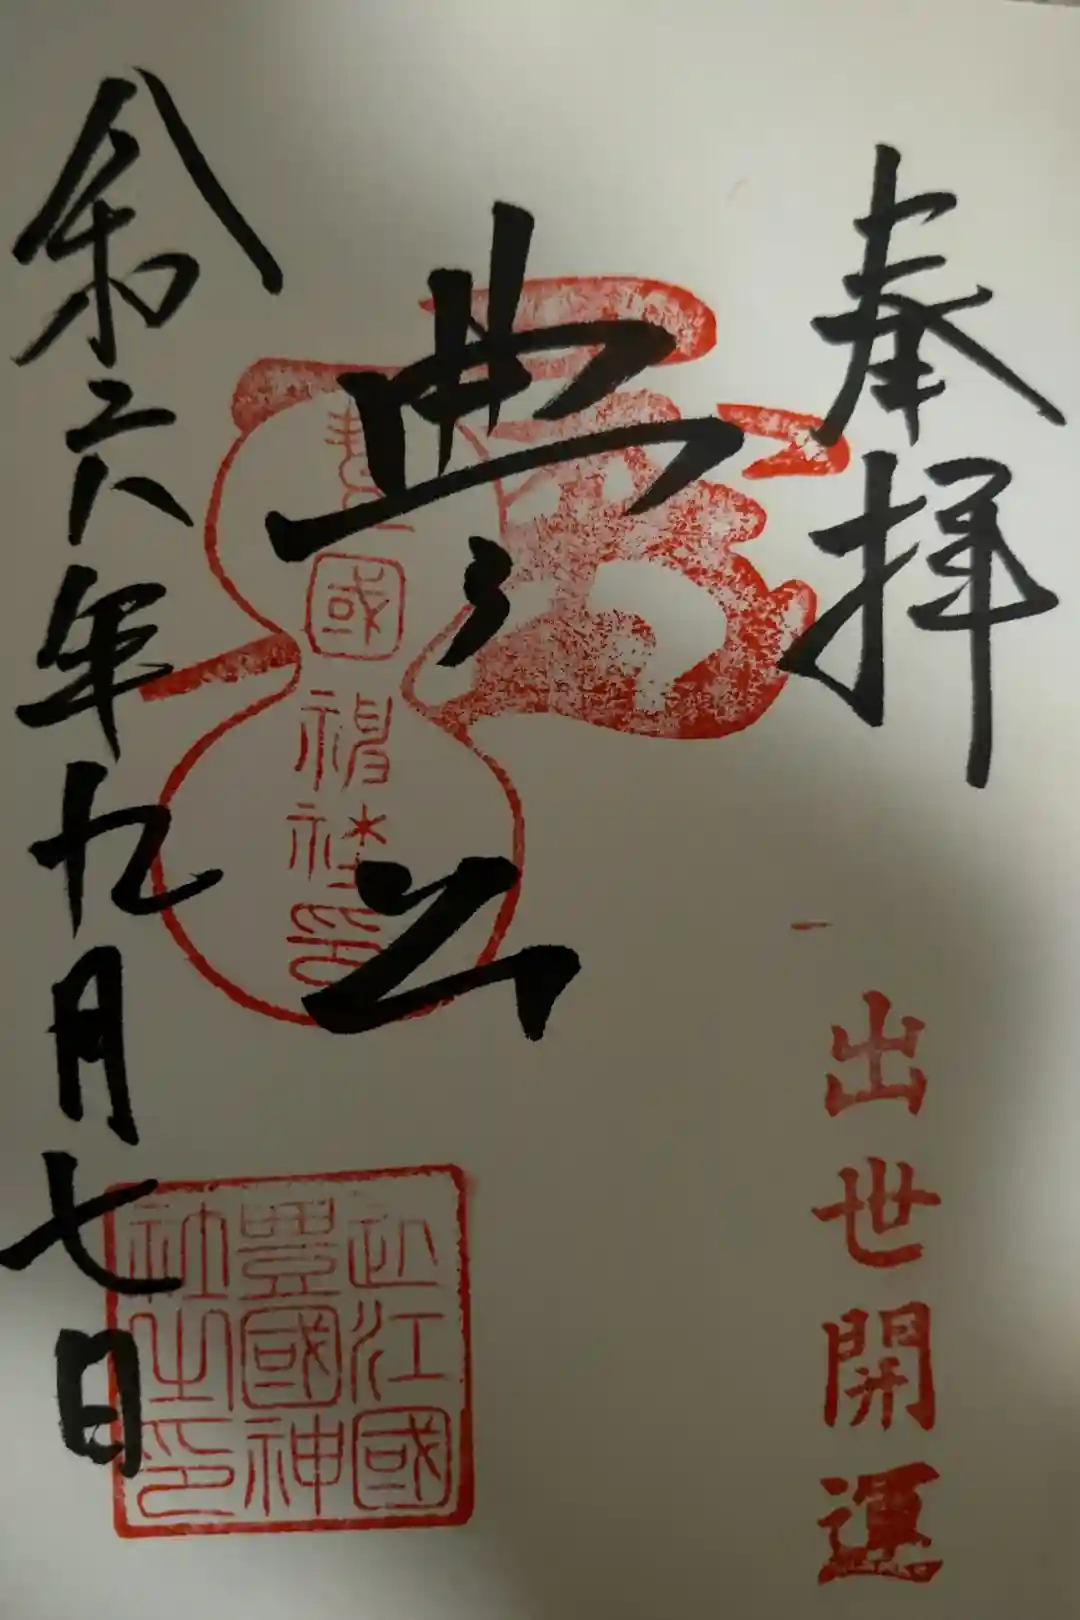 奉拝
出世開運
豊公
豊國神社印
近江國
豊國神
社之印
令和六年九月七日